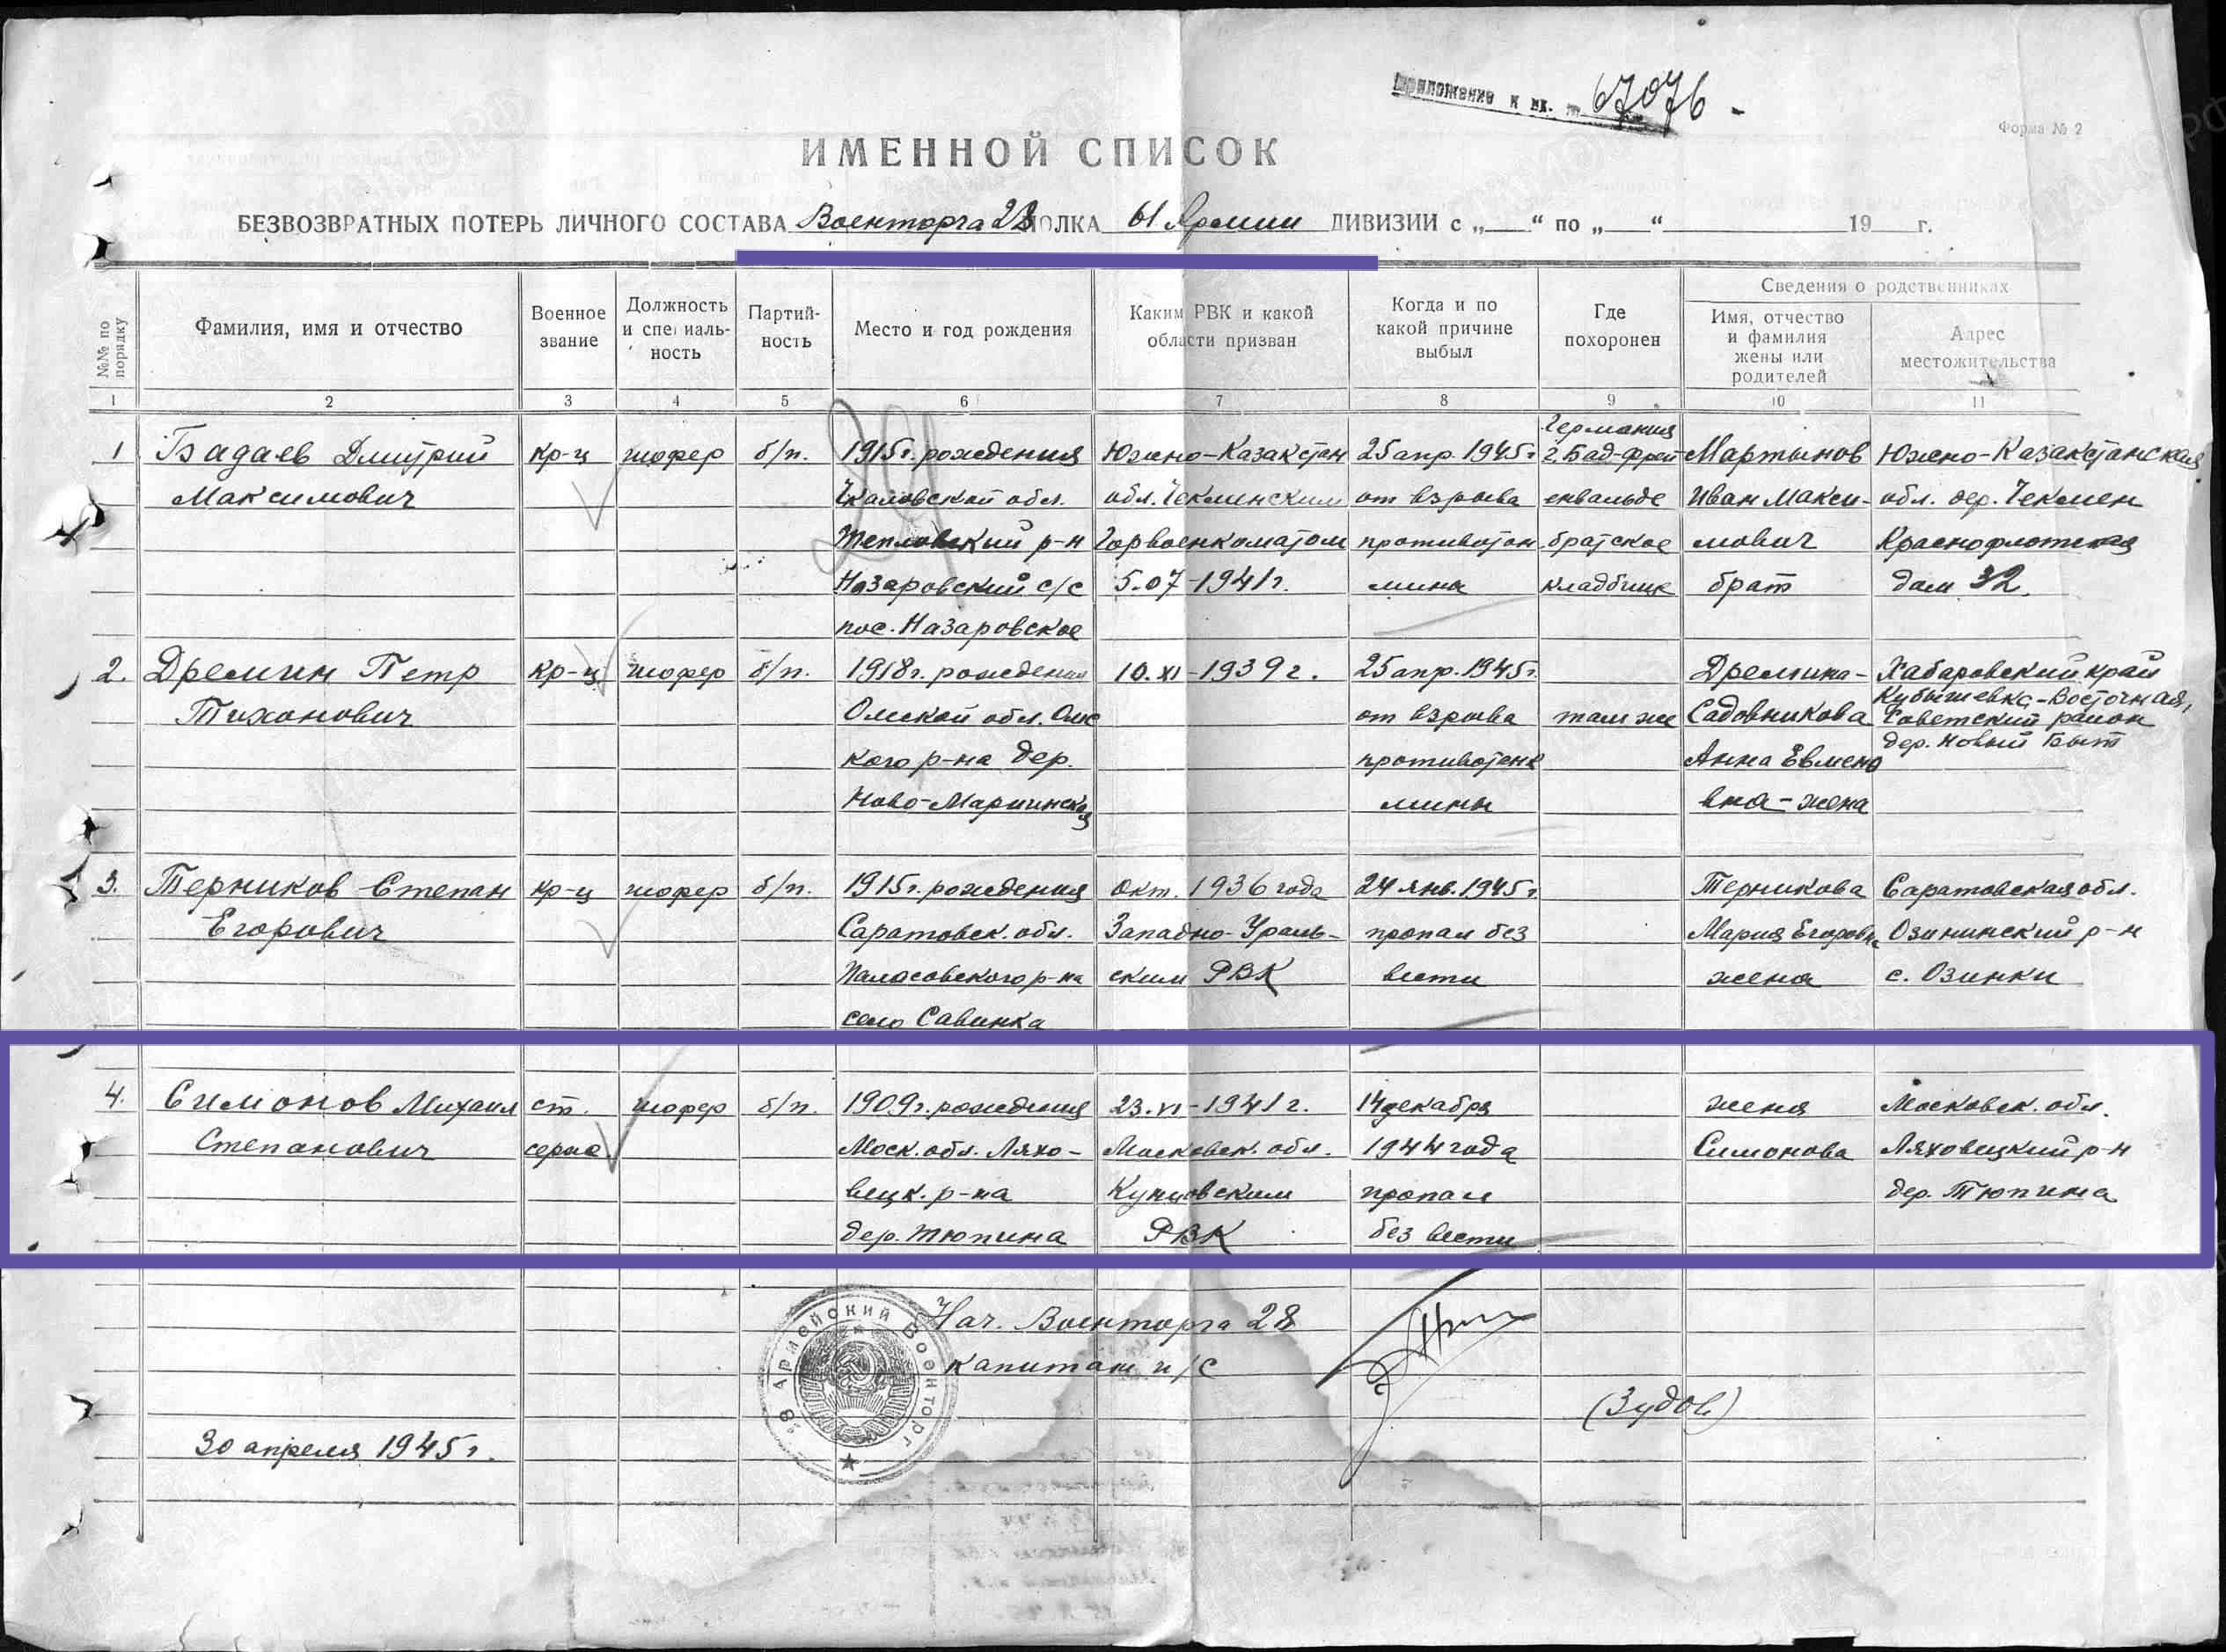 Приложение к вх. № 67076 -
Форма № 2
ИМЕННОЙ СПИСОК
БЕЗВОЗВРАТНЫХ ПОТЕРЬ ЛИЧНОГО СОСТАВА Военторга 28 ПОЛКА 61 Армии ДИВИЗИИ с „ “ по „ “ 19 г.
№№ по порядку
Фамилия, имя и отчество
Военное звание
Должность и специальность
Партийность
Место и год рождения
Каким РВК и какой области призван
Когда и по какой причине выбыл
Где похоронен
Сведения о родственниках
Имя, отчество и фамилия жены или родителей
Адрес местожительства
1 2 3 4 5 6 7 8 9 10 11
Германия
1 Бадаев Дмитрий кр-ц шофер б/п. 1915 г. рождения Южно-Казакстан 25 апр. 1945 г г. Бад-Фрей Мартынов Южно-Казакстанская
Максимович Чкаловской обл. обл. Чекминским от взрыва енвальде Иван Макси- обл. дер. Чекмен
Тепловский р-н Горвоенкоматом противотан братское мович Краснофлотская
Назаровский с/с 5.07-1941 г. мины кладбище брат дом 32.
пос. Назаровское
2. Дремин Петр кр-ц шофер б/п. 1918 г. рождения 10.XI-1939 г. 25 апр. 1945 г. Дремина- Хабаровский край
Куйбышевка-Восточная,
Тихонович Омской обл. Омс от взрыва там же Садовникова Советский район
дер. Новый Быт
кого р-на дер. противотанк Анна Евмено
Ново-Мариинская мины вна-жена
3. Терников Степан кр-ц шофер б/п. 1915 г. рождения Окт. 1936 года 24 янв. 1945 г. Терникова Саратовская обл.
Егорович Саратовск. обл. Западно-Ураль- пропал без Мария Егоровна Озининский р-н
Паласовского р-на ским РВК вести жена с. Озинки
село Савинка
4. Симонов Михаил ст. шофер б/п. 1909 г. рождения 23.VI-1941 г. 14 декабря жена Московск. обл.
Степанович серж Моск. обл. Ляхо- Московск. обл. 1944 года Симонова Ляховецкий р-н
вецк. р-на Кунцовским пропал дер. Тюпина
дер. Тюпина РВК без вести
28 Армейский Военторг
Нач. Военторга 28
капитан и/с
(Зудов)
30 апреля 1945 г.